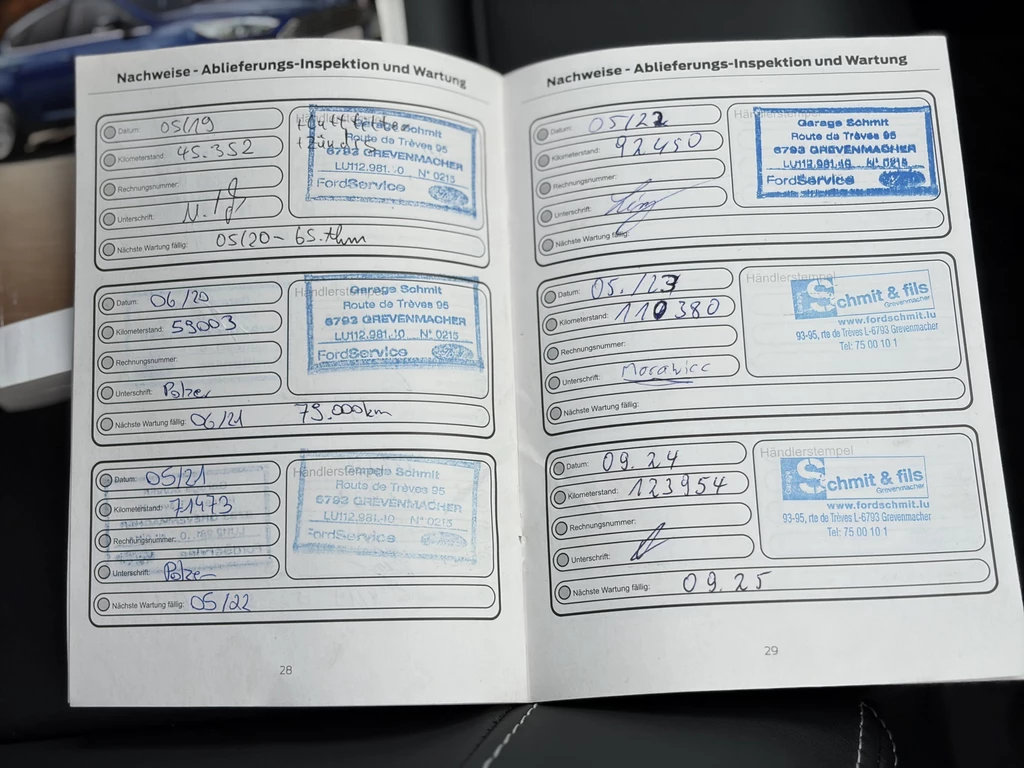 Nachweise - Ablieferungs-Inspektion und Wartung
Datum: 05/19
Kilometerstand: 45.352
Rechnungsnummer:
Unterschrift:
Nächste Wartung fällig: 05/20 - 65.tkm
Händlerstempel
Garage Schmit
Route de Trèves 95
6793 GREVENMACHER
LU112.981.10 N° 0215
FordService
Datum: 06/20
Kilometerstand: 59003
Rechnungsnummer:
Unterschrift:
Nächste Wartung fällig: 06/21 79.000km
Händlerstempel
Garage Schmit
Route de Trèves 95
6793 GREVENMACHER
LU112.981.10 N° 0215
FordService
Datum: 05/21
Kilometerstand: 71473
Rechnungsnummer:
Unterschrift:
Nächste Wartung fällig: 05/22
Händlerstempel
Garage Schmit
Route de Trèves 95
6793 GREVENMACHER
LU112.981.10 N° 0215
FordService
28
Nachweise - Ablieferungs-Inspektion und Wartung
Datum: 05/22
Kilometerstand: 92450
Rechnungsnummer:
Unterschrift:
Nächste Wartung fällig:
Garage Schmit
Route de Trèves 95
6793 GREVENMACHER
LU112.981.10 N° 0215
FordService
Datum: 05/23
Kilometerstand: 110380
Rechnungsnummer:
Unterschrift:
Nächste Wartung fällig:
Händlerstempel
Schmit & fils
Grevenmacher
www.fordschmit.lu
93-95, rte de Trèves L-6793 Grevenmacher
Tel: 75 00 10 1
Datum: 09.24
Kilometerstand: 123954
Rechnungsnummer:
Unterschrift:
Nächste Wartung fällig: 09.25
Händlerstempel
Schmit & fils
Grevenmacher
www.fordschmit.lu
93-95, rte de Trèves L-6793 Grevenmacher
Tel: 75 00 10 1
29